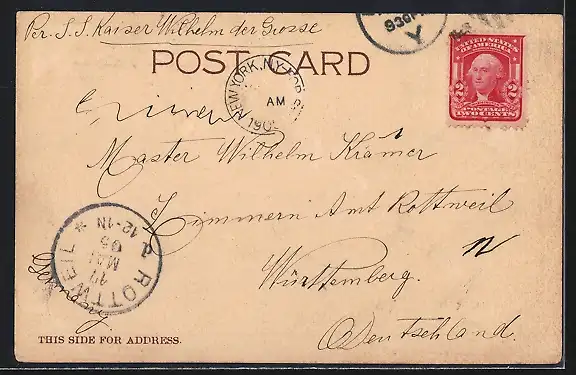 Per. S. S. Kaiser Wilhelm der Grosse
POST CARD
930P
Y
NEW YORK, N.Y.
AM
1905
UNITED STATES
OF AMERICA
2 2
POSTAGE
TWO CENTS
Master Wilhelm Krämer
Zimmern Amt Rottweil
Württemberg.
Deutschland.
ROTTWEIL
17
MAI
05
12-1N
Germany
THIS SIDE FOR ADDRESS.